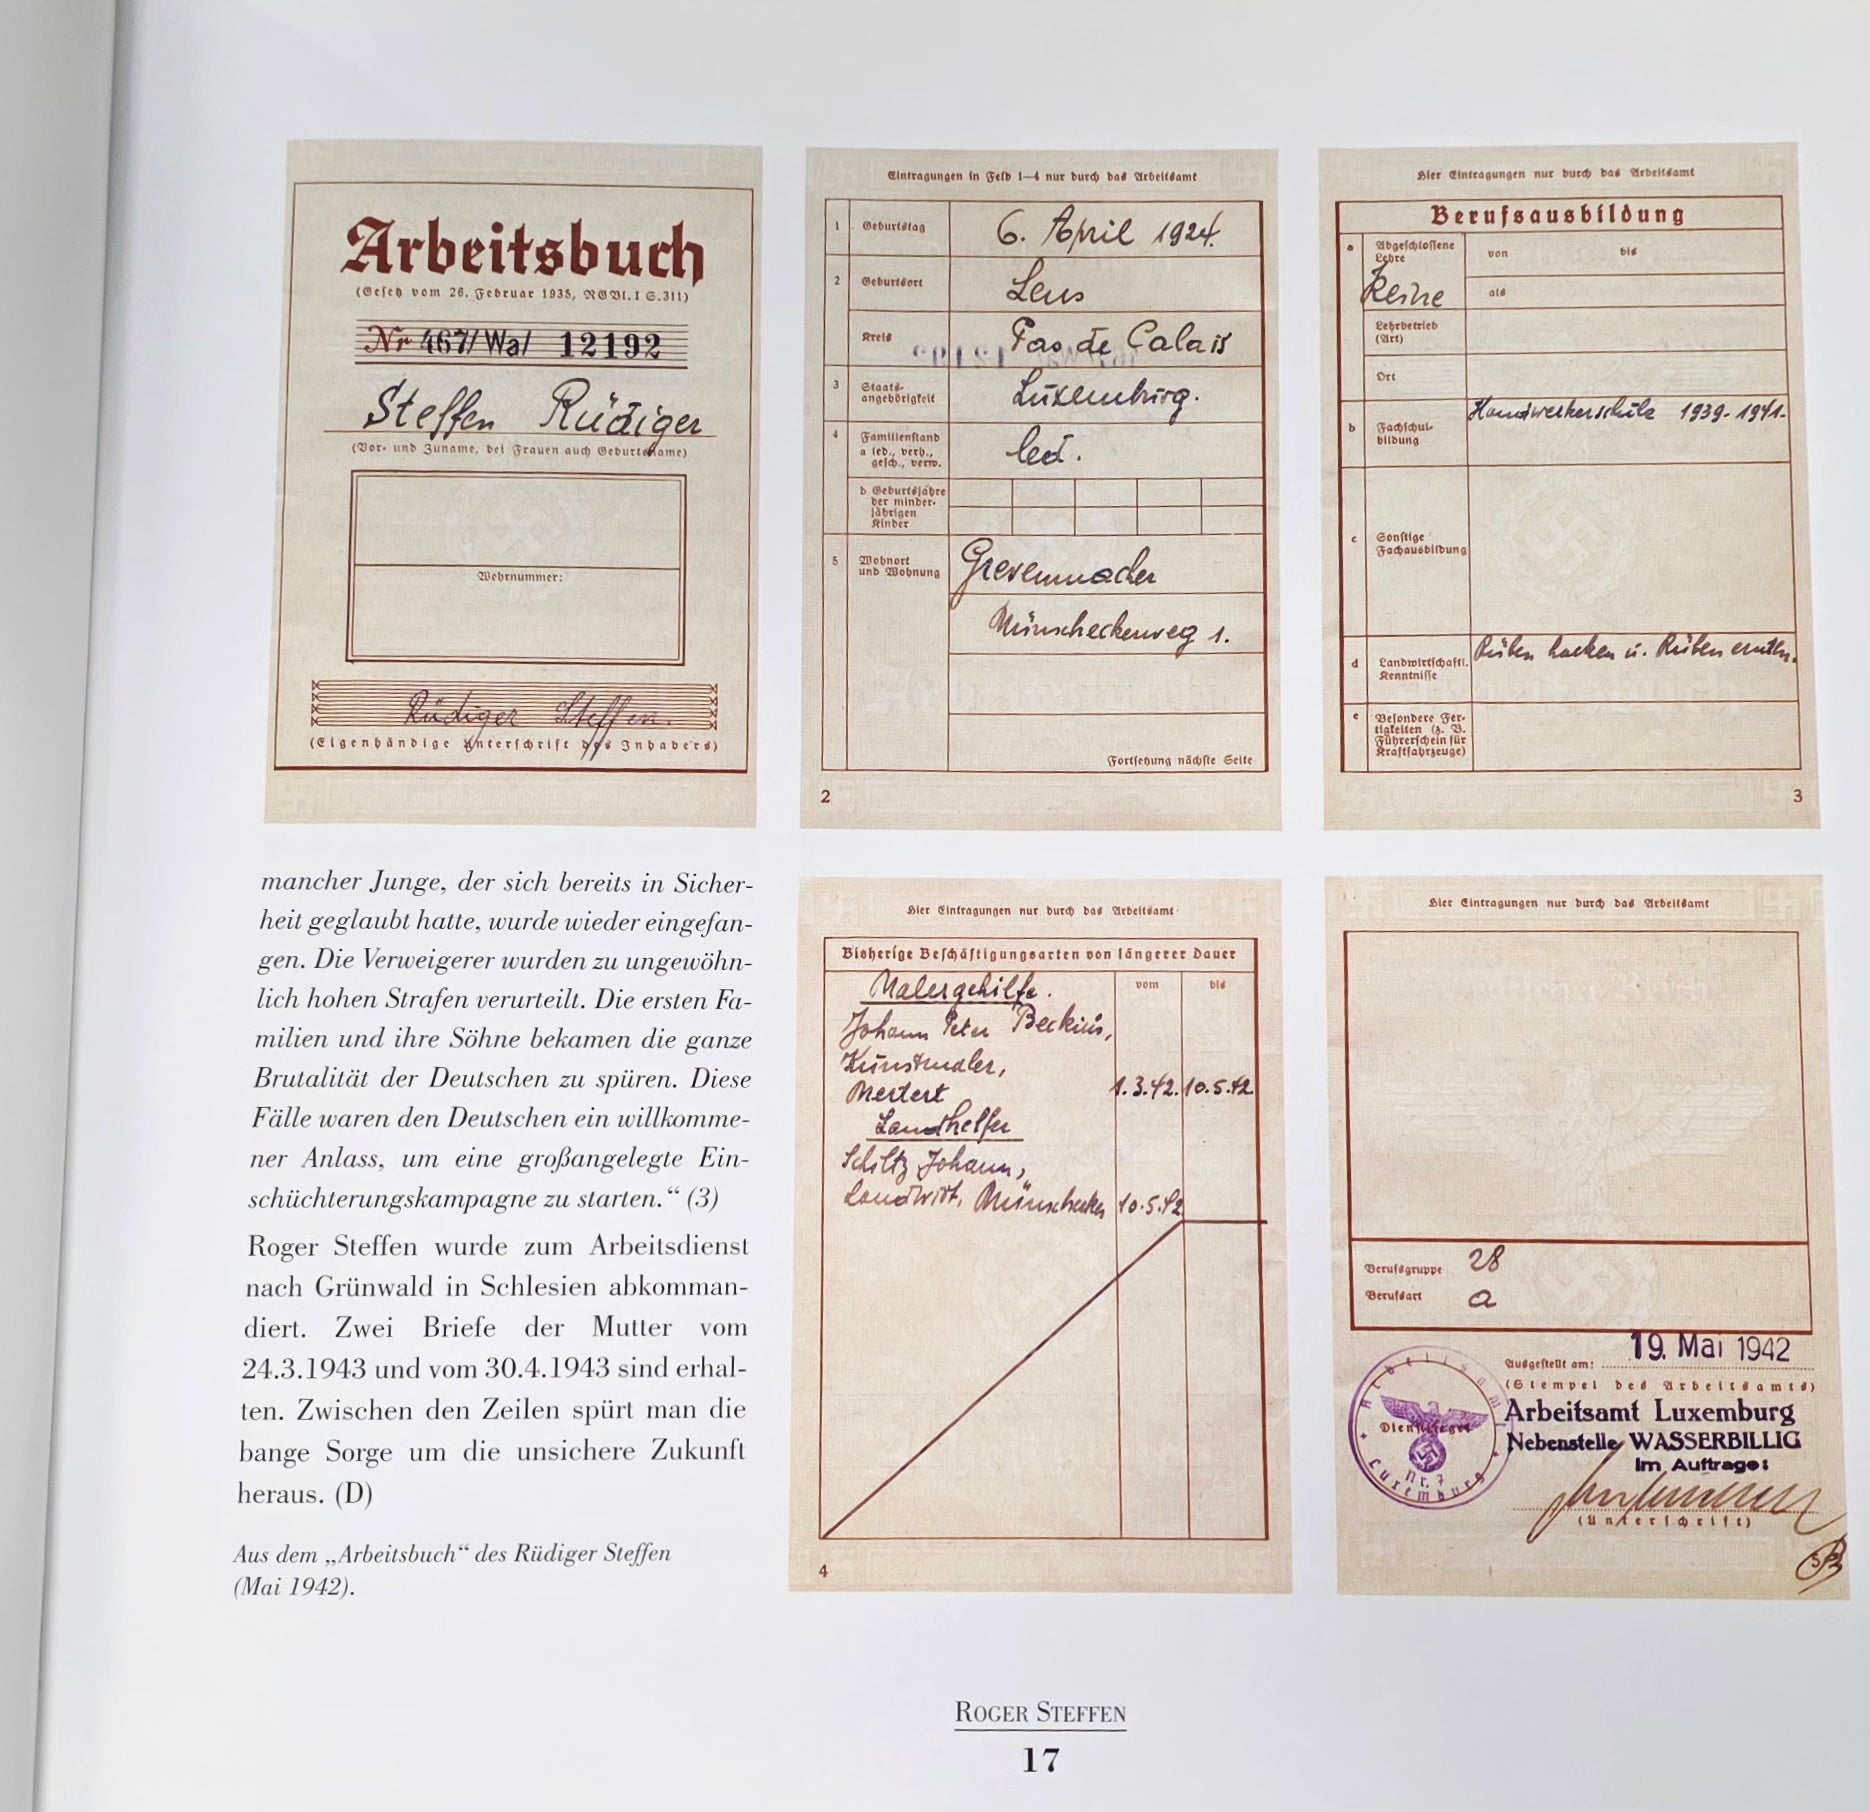 Arbeitsbuch
(Gesetz vom 26. Februar 1935, RGBl. I S. 311)
Nr 467/Wa/ 12192
Steffen Rüdiger
(Vor- und Zuname, bei Frauen auch Geburtsname)
Wehrnummer:
Rüdiger Steffen.
(Eigenhändige Unterschrift des Inhabers)
Eintragungen in Feld 1—4 nur durch das Arbeitsamt
1 Geburtstag 6. April 1924.
2 Geburtsort Lens
Kreis Pas de Calais
3 Staats-
angehörigkeit Luxemburg.
4 Familienstand
a led., verh.,
gesch., verw. led.
b Geburtsjahre
der minder-
jährigen
Kinder
5 Wohnort
und Wohnung Grevenmacher
Münscheckerweg 1.
Fortsetzung nächste Seite
2
Hier Eintragungen nur durch das Arbeitsamt
Berufsausbildung
a Abgeschlossene
Lehre von bis
Keine als
Lehrbetrieb
(Art)
Ort
b Fachschul-
bildung Handwerkerschule 1939-1941.
c Sonstige
Fachausbildung
d Landwirtschaftl.
Kenntnisse Rüben hacken u. Rüben ernten.
e Besondere Fer-
tigkeiten (z. B.
Führerschein für
Kraftfahrzeuge)
3
mancher Junge, der sich bereits in Sicher-
heit geglaubt hatte, wurde wieder eingefan-
gen. Die Verweigerer wurden zu ungewöhn-
lich hohen Strafen verurteilt. Die ersten Fa-
milien und ihre Söhne bekamen die ganze
Brutalität der Deutschen zu spüren. Diese
Fälle waren den Deutschen ein willkomme-
ner Anlass, um eine großangelegte Ein-
schüchterungskampagne zu starten.“ (3)
Roger Steffen wurde zum Arbeitsdienst
nach Grünwald in Schlesien abkomman-
diert. Zwei Briefe der Mutter vom
24.3.1943 und vom 30.4.1943 sind erhal-
ten. Zwischen den Zeilen spürt man die
bange Sorge um die unsichere Zukunft
heraus. (D)
Aus dem „Arbeitsbuch“ des Rüdiger Steffen
(Mai 1942).
Hier Eintragungen nur durch das Arbeitsamt
Bisherige Beschäftigungsarten von längerer Dauer
Malergehilfe. vom bis
Johann Peter Beckius,
Kunstmaler,
Mertert 1.3.42. 10.5.42.
Landhelfer
Schiltz Johann,
Landwirt, Münschecker 10.5.42
4
Hier Eintragungen nur durch das Arbeitsamt
Berufsgruppe 28
Berufsart a
Ausgestellt am: 19. Mai 1942
(Stempel des Arbeitsamts)
Arbeitsamt Luxemburg
Nebenstelle WASSERBILLIG
Im Auftrage:
(Unterschrift)
Arbeitsamt
Dienstsiegel
Nr. 7
Luxemburg
ROGER STEFFEN
17